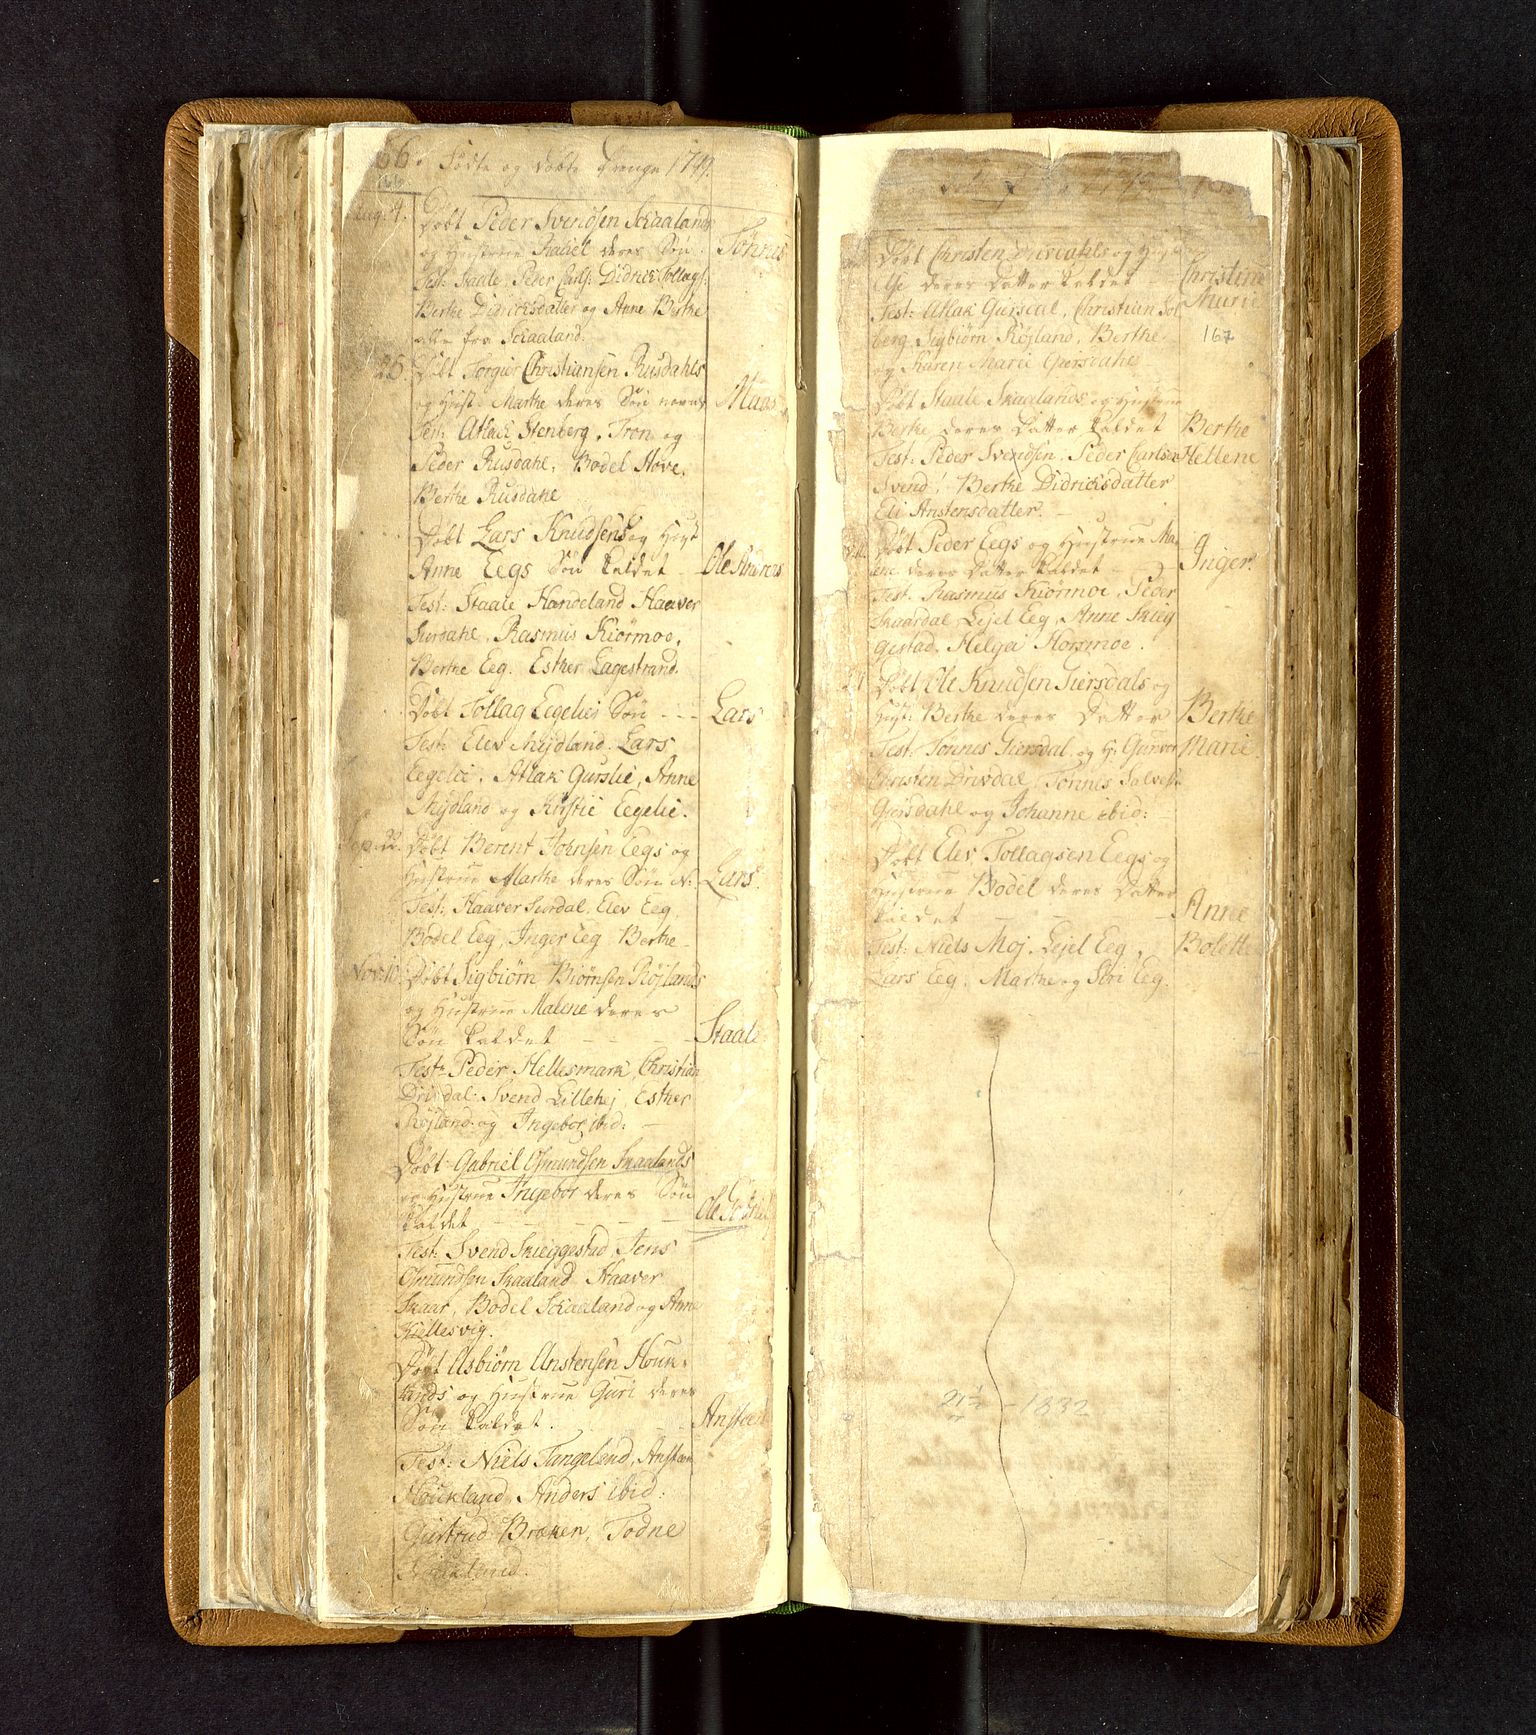 66. Fødte og Døbte Drenge 1799.
166
Aug: 4. Døbt Peder Svendsen Skaalands
og Hustrue Rachel deres Søn Tönnes
Test: Staale, Peder Carls: Didrick Tollags:
Berthe Didricksdatter og Anne Berthe
alle fra Skaaland.
25. Døbt Torgier Christiansen Rusdahls
og Hust: Marthe deres Søn Maas
Test: Atlack Stenberg, Tron og
Peder Rusdahl, Bodel Hove,
Berthe Rusdahl
Døbt Lars Knudsens og Hust
Anne Eegs Søn kaldet Ole Andreas
Test: Staale Handeland Haaver
Surdahl, Rasmus Kiörmoe,
Berthe Eeg. Esther Lagestrand.
Døbt Tollag Eegelies Søn - - - Lars
Test: Elev Mydland. Lars
Eegelie, Atlak Gurslie, Anne
Mydland og Kristie Eegelie.
Sep. 22. Døbt Berent Johnsen Eegs og
Hustrue Marthe deres Søn N: Lars.
Test: Haaver Surdal. Elev Eeg,
Bodel Eeg, Inger Eeg Berthe
Nov: 10. Døbt Sigbiørn Biørnsen Röjlands
og Hustrue Malene deres
Søn kaldet - - - Staale
Test: Peder Hellesmark, Christian
Drivdal: Svend Lillehej, Esther
Röjland og Ingebor ibid: -
Døbt Gabriel Osmundsen Skaalands
og Hustrue Ingebor deres Søn
kaldet - - - - - Ole Gabriel
Test: Svend Skieggestad, Jens
Osmundsen Skaaland, Haaver
Skaar, Bodel Skaaland og Anne
Kiellesvig.
Døbt Asbiørn Anstensen Houk-
lands og Hustrue Guri deres
Søn kaldet. - - Ansten
Test: Niels Tangeland, Ansten
Houkland, Anders ibid:
Giertrud Bræken, Todne
Houkland.
Døbt Christen Drivdahls og
deres Datter kaldet - Christine
Marie
Test: Atlak Gursdal, Christian Sol
berg, Sigbiørn Röjland, Berthe
167
og Karen Marie Giersdahl
Døbt Staale Skaalands og Hustrue
Berthe deres Datter kaldet Berthe
Test: Peder Svendsen. Peder Carlsen Hellene
Svend, Berthe Didricksdatter
Eli Anstensdatter. -
Døbt Peder Eegs og Hustrue Ma-
deres Datter kaldet - Inger.
Test. Rasmus Kiörmoe, Peder
Skaardal, Lejel Eeg, Anne Skieg
gestad, Helga
Døbt Ole Knudsen Giersdals og
Hust: Berthe deres Datter Berthe
Test: Tønnes Giersdal og H: Gunvor Marie
Christen Drivdal, Tønnes Salves:
Giersdahl og Johanne ibid: -
Døbt Elev Tollagsen Eegs og
Hustrue Bodel deres Datter
kaldet - - - Anne
Test: Niels Moj, Lejel Eeg, Bolette
Lars Eeg, Marthe og Siri Eeg.
- 1832